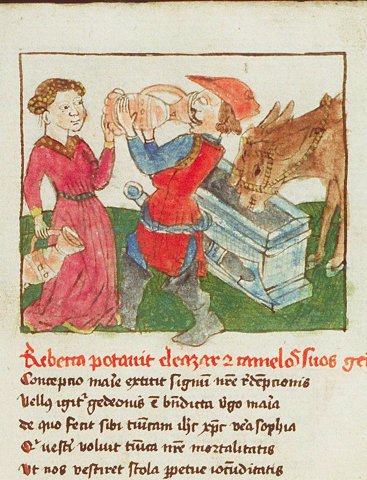 Rebecca potauit eleazar ⁊ camelos suos ge
Conceptio maīe extitit signū nrē redēpcionis
Vellꝰ igit᷑ gedeonis ē bn̄dicta v̄go maīa
de quo fecit sibi tunicam ihc xpc vera sophia
Qͥ vestiri voluit tunica nrē mortalitatis
Vt nos vestiret stola perpetue iocunditatis